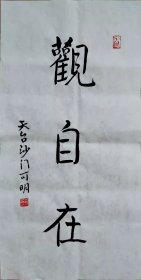 觀自在
天台沙门可明